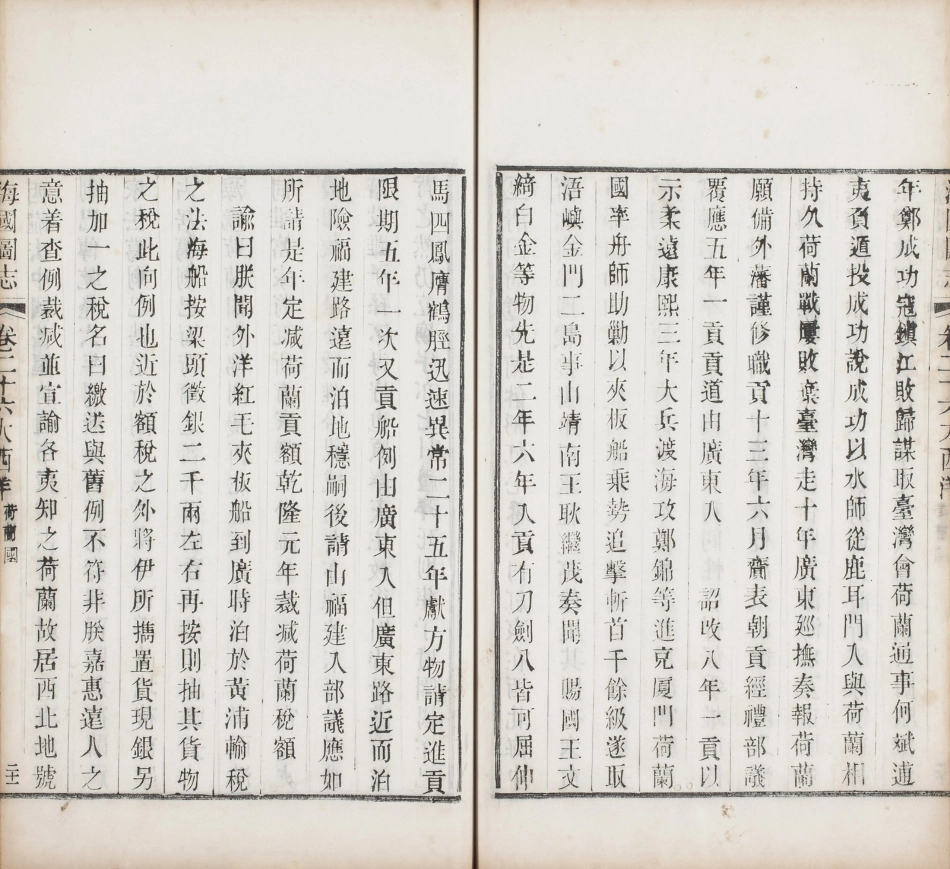 年鄭成功寇鎮江敗歸謀取臺灣會荷蘭通事何斌逋
夷賔遁投成功說成功以水師從鹿耳門入與荷蘭相
持久荷蘭戰屢敗棄臺灣走十年廣東廵撫奏報荷蘭
願備外藩謹修職貢十三年六月齎表朝貢經禮部議
覆應五年一貢貢道由廣東入 詔改八年一貢以
示柔遠康熙三年大兵渡海攻鄭錦等進克厦門荷蘭
國率舟師助勦以夾板船乘勢追擊斬首千餘級遂取
浯嶼金門二島事由靖南王耿繼茂奏聞 賜國王文
綺白金等物先是二年六年入貢有刀劍八皆可屈伸
馬四鳳膺鶴脛迅速異常二十五年獻方物請定進貢
限期五年一次又貢船例由廣東入但廣東路近而泊
地險福建路遠而泊地穩嗣後請由福建入部議應如
所請是年定减荷蘭貢額乾隆元年裁减荷蘭稅額
諭曰朕聞外洋紅毛夾板船到廣時泊於黃浦輸稅
之法海船按梁頭徵銀二千兩左右再按則抽其貨物
之稅此向例也近於額稅之外將伊所攜置貨現銀另
抽加一之稅名曰繳送與舊例不符非朕嘉惠遠人之
意着查例裁减並宣諭各夷知之荷蘭故居西北地號
海國圖志 卷二十六大西洋 荷蘭國 二十